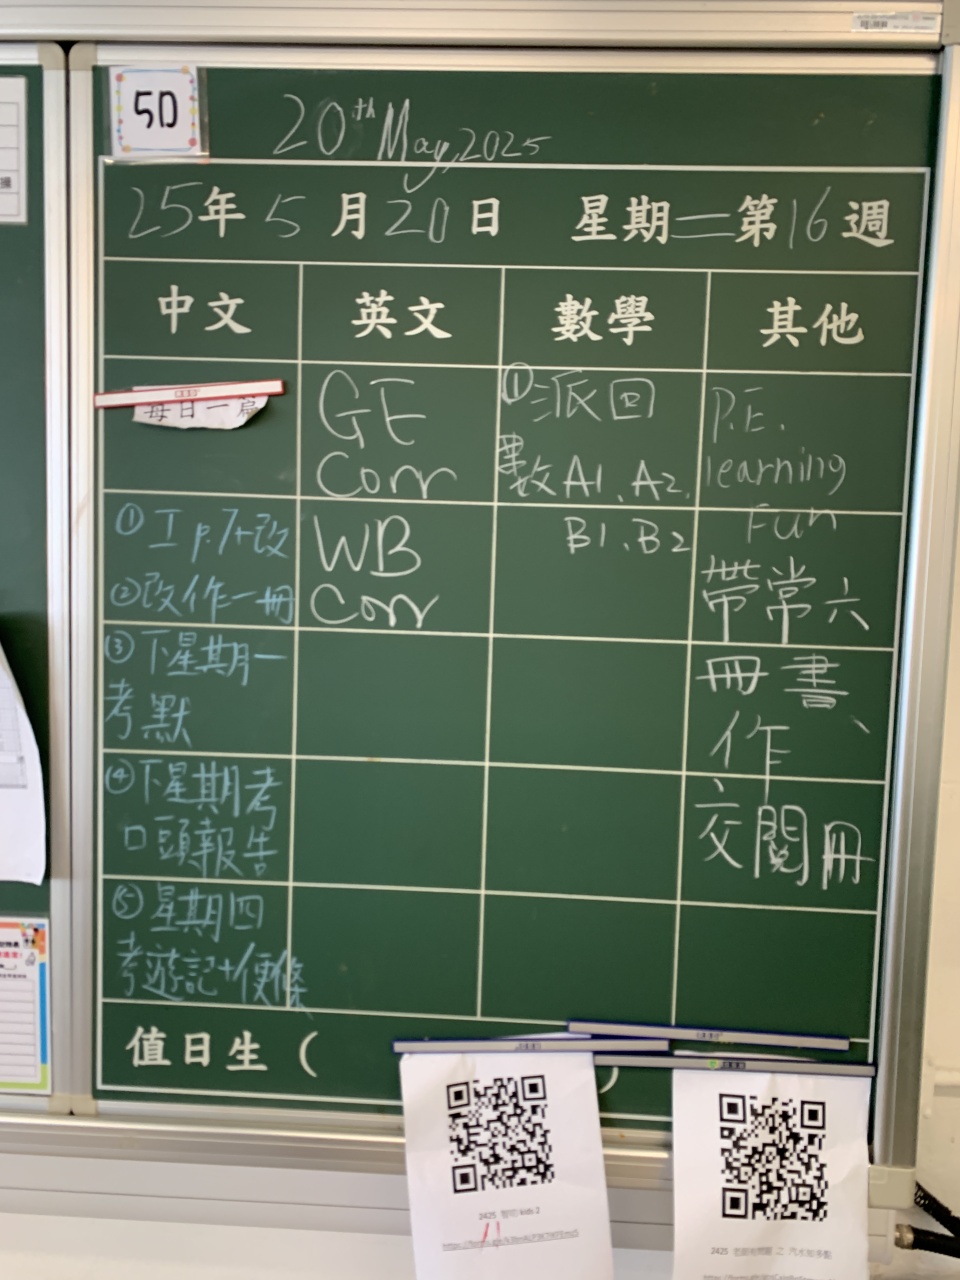 5D
20th May, 2025
25年 5 月 20 日 星期二第16週
中文
英文
數學
其他
每日一篇
① 工 p.7+改
②改作一冊
③下星期一
考默
④下星期考
口頭報告
⑤星期四
考遊記+便條
GE
Corr
WB
Corr
①派回
數A1、A2、
B1、B2
P.E.
learning
Fun
帶常六
冊書、
作
交閱冊
值日生 ( )
2425
kids 2
2425
之 汽水知多點